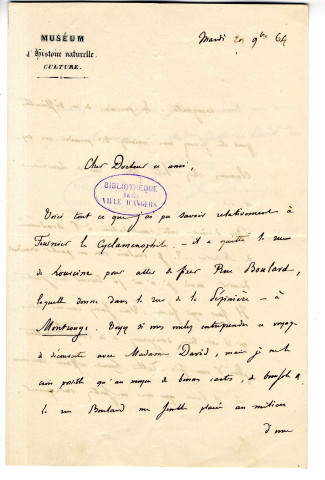 MUSÉUM
d'Histoire naturelle.
CULTURE.
Mardi 9bre 64
Cher Docteur et ami,
BIBLIOTHÈQUE
DE LA
VILLE D'ANGERS
Voici tout ce que j'ai pu savoir relativement à
Fournier le Cyclamenophile. – il a quitté la rue
de Lourcine pour aller se fixer Rue Boulard,
laquelle donne dans la rue de la Pépinière – à
Montrouge. Voyez si vous voulez entreprendre ce voyage
de découverte avec Madame David, mais je ne le
crois possible qu'au moyen de bonnes cartes, de
la rue Boulard me semble placée au milieu
d'une